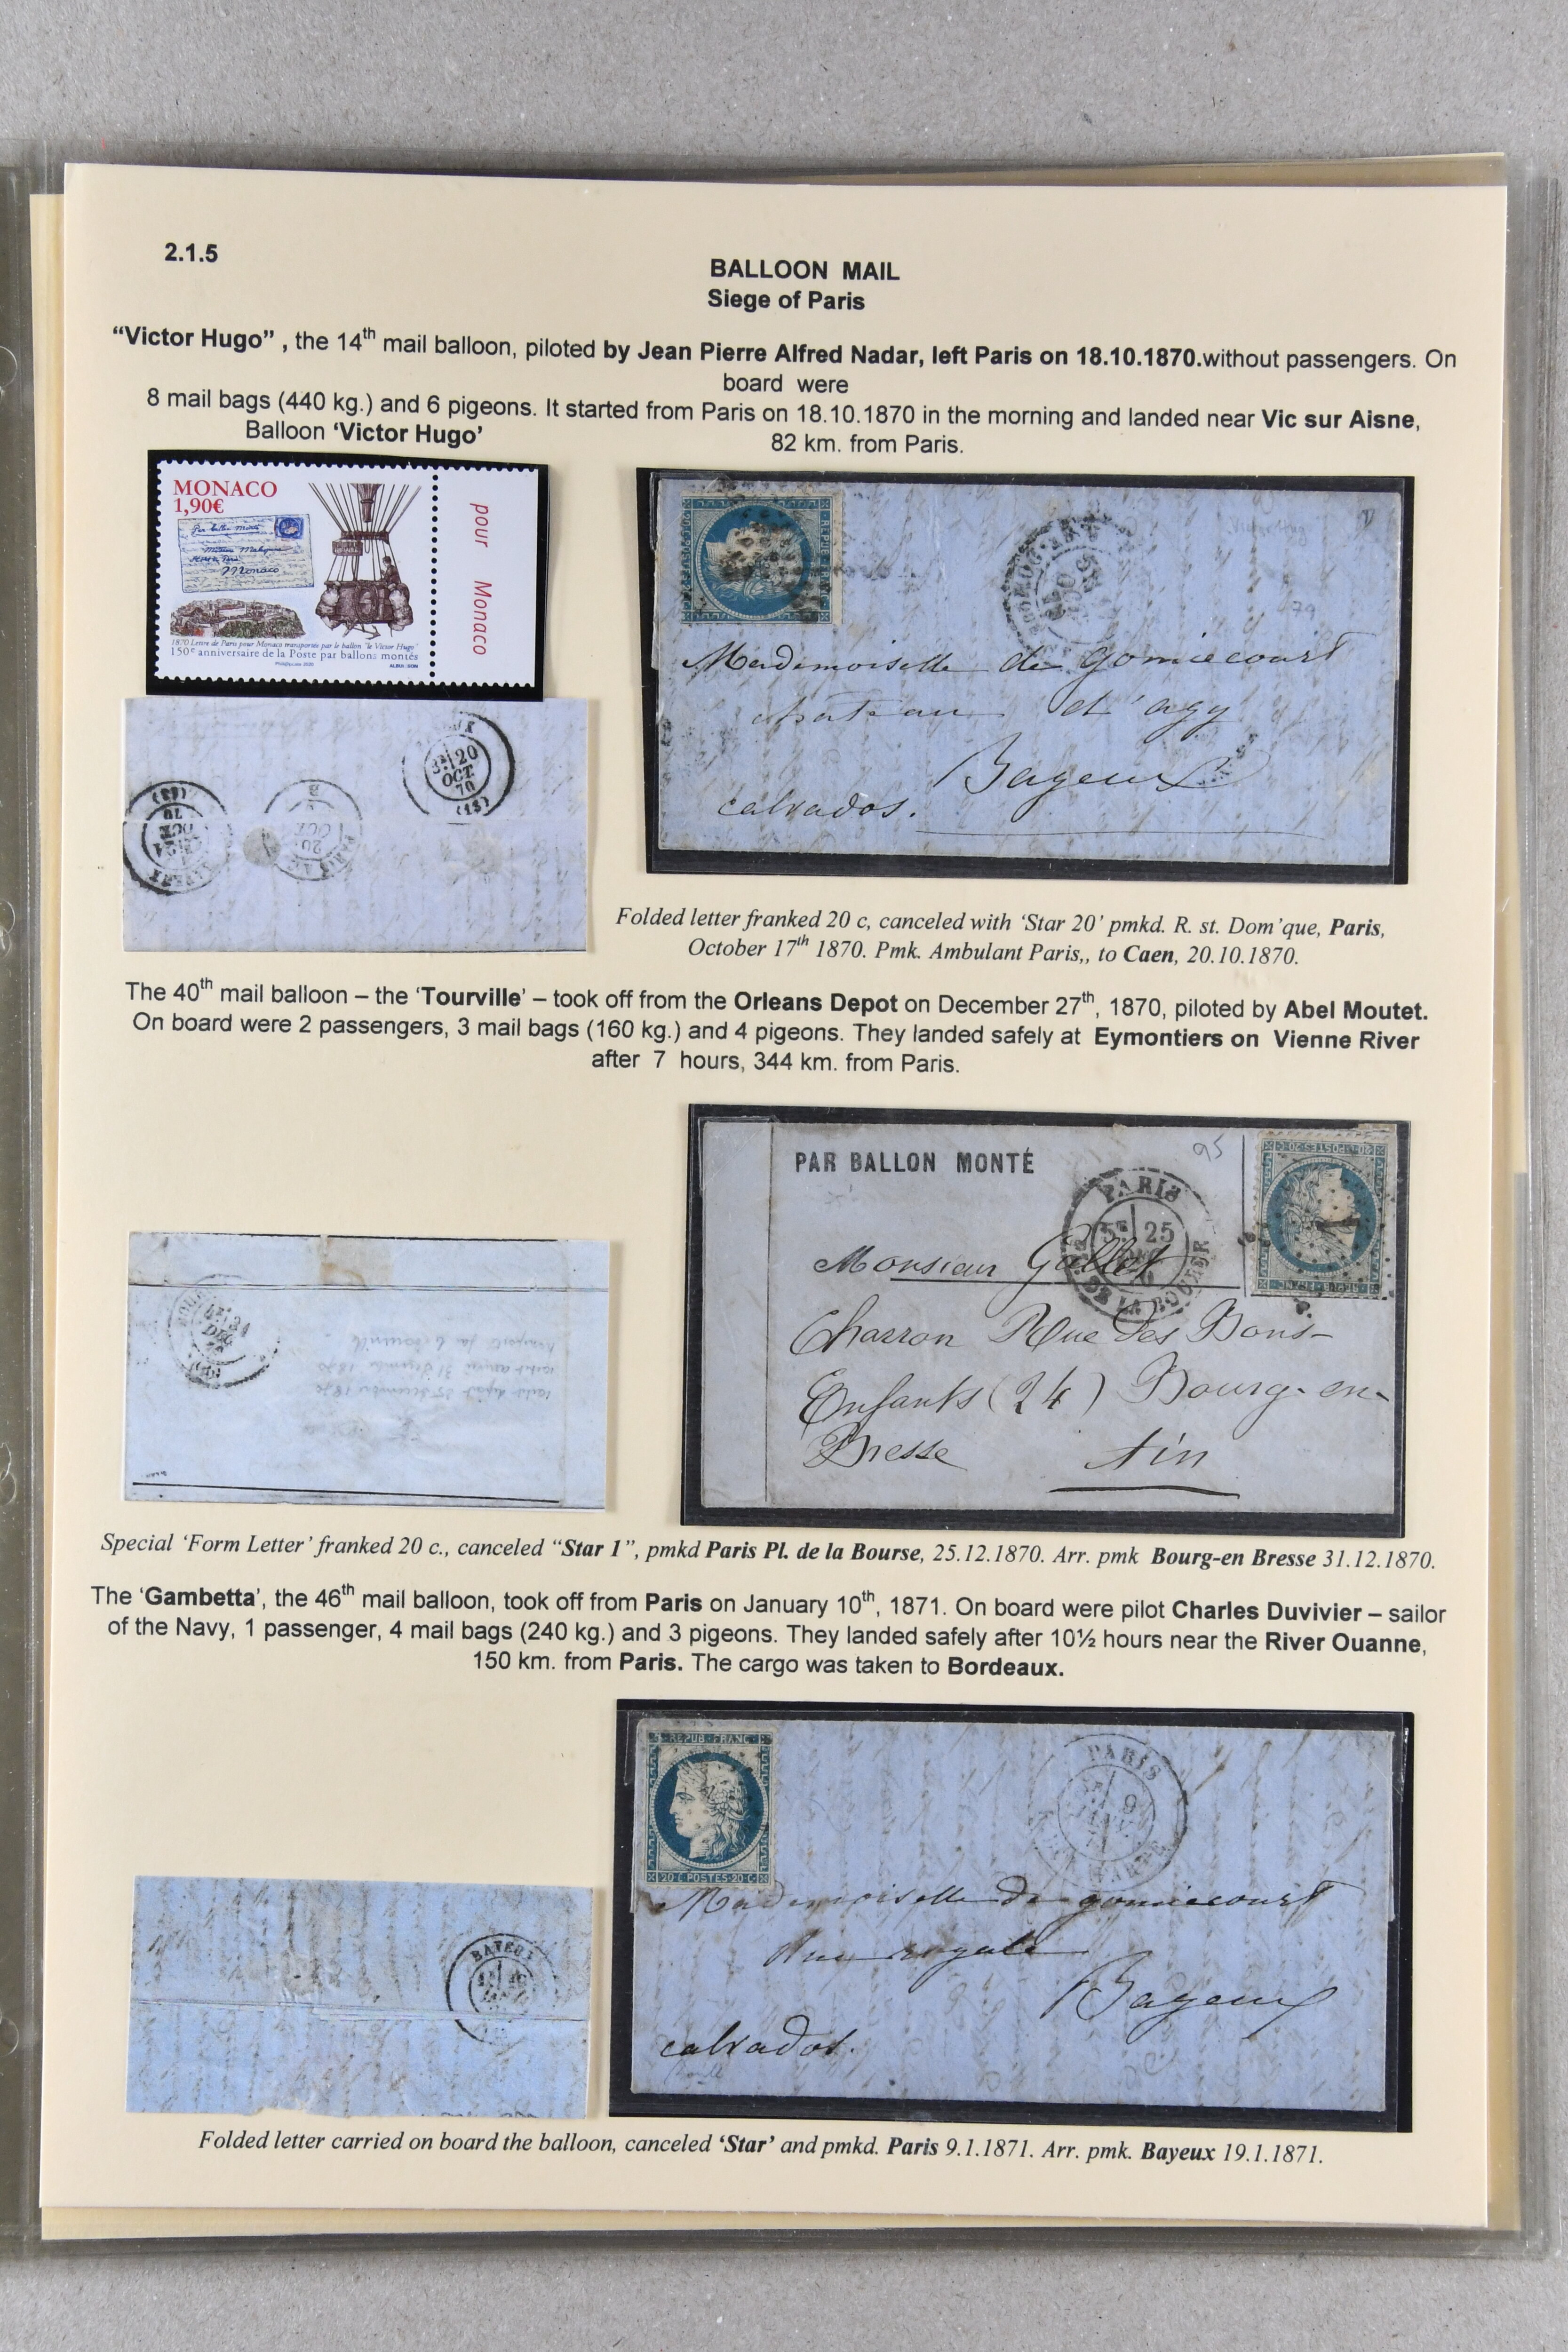 2.1.5
BALLOON MAIL
Siege of Paris
“Victor Hugo” , the 14th mail balloon, piloted by Jean Pierre Alfred Nadar, left Paris on 18.10.1870.without passengers. On
board were
8 mail bags (440 kg.) and 6 pigeons. It started from Paris on 18.10.1870 in the morning and landed near Vic sur Aisne,
82 km. from Paris.
Balloon ‘Victor Hugo’
MONACO
1,90€
Par ballon monté
Monaco
1870 Lettre de Paris pour Monaco transportée par le ballon "le Victor Hugo"
150e anniversaire de la Poste par ballons montés
pour Monaco
20
OCT.
70
Mademoiselle de Gomiecourt
château d'agy
Bayeux
calvados.
Folded letter franked 20 c, canceled with ‘Star 20’ pmkd. R. st. Dom’que, Paris,
October 17th 1870. Pmk. Ambulant Paris,, to Caen, 20.10.1870.
The 40th mail balloon – the ‘Tourville’ – took off from the Orleans Depot on December 27th, 1870, piloted by Abel Moutet.
On board were 2 passengers, 3 mail bags (160 kg.) and 4 pigeons. They landed safely at Eymontiers on Vienne River
after 7 hours, 344 km. from Paris.
PAR BALLON MONTÉ
95
PARIS
5E 25
Monsieur Gallet
Charron Rue des Bons-
Enfants (24) Bourg-en-
Bresse Ain
Special ‘Form Letter’ franked 20 c., canceled “Star 1”, pmkd Paris Pl. de la Bourse, 25.12.1870. Arr. pmk Bourg-en Bresse 31.12.1870.
The ‘Gambetta’, the 46th mail balloon, took off from Paris on January 10th, 1871. On board were pilot Charles Duvivier – sailor
of the Navy, 1 passenger, 4 mail bags (240 kg.) and 3 pigeons. They landed safely after 10½ hours near the River Ouanne,
150 km. from Paris. The cargo was taken to Bordeaux.
REPUB FRANC
20 C POSTES 20 C
PARIS
9
Mademoiselle de gomiecourt
Rue royale
Bayeux
calvados.
BAYEUX
Folded letter carried on board the balloon, canceled ‘Star’ and pmkd. Paris 9.1.1871. Arr. pmk. Bayeux 19.1.1871.